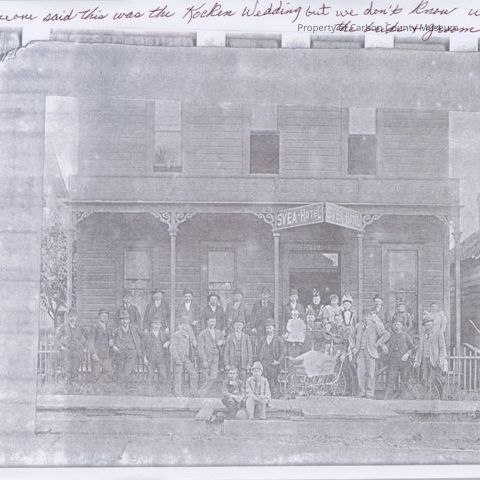 said this was the Kocken Wedding but we don't know
Property of Carbon County Museum
the bride & groom
SVEA-HOTEL SVEA-HOTEL